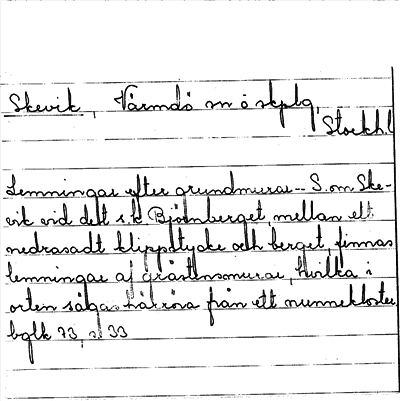 Skevik, Värmdö sn o skplg,
Stockh.l
Lemningar efter grundmurar -- S. om Ske-
vik vid dett s.k. Björnberget, mellan ett
nedrasadt klippstycke och berget, finnas
lemningar af gråstensmurar, hvilka i
orten sägas härröra från ett nunnekloster
bglk 73, s 33